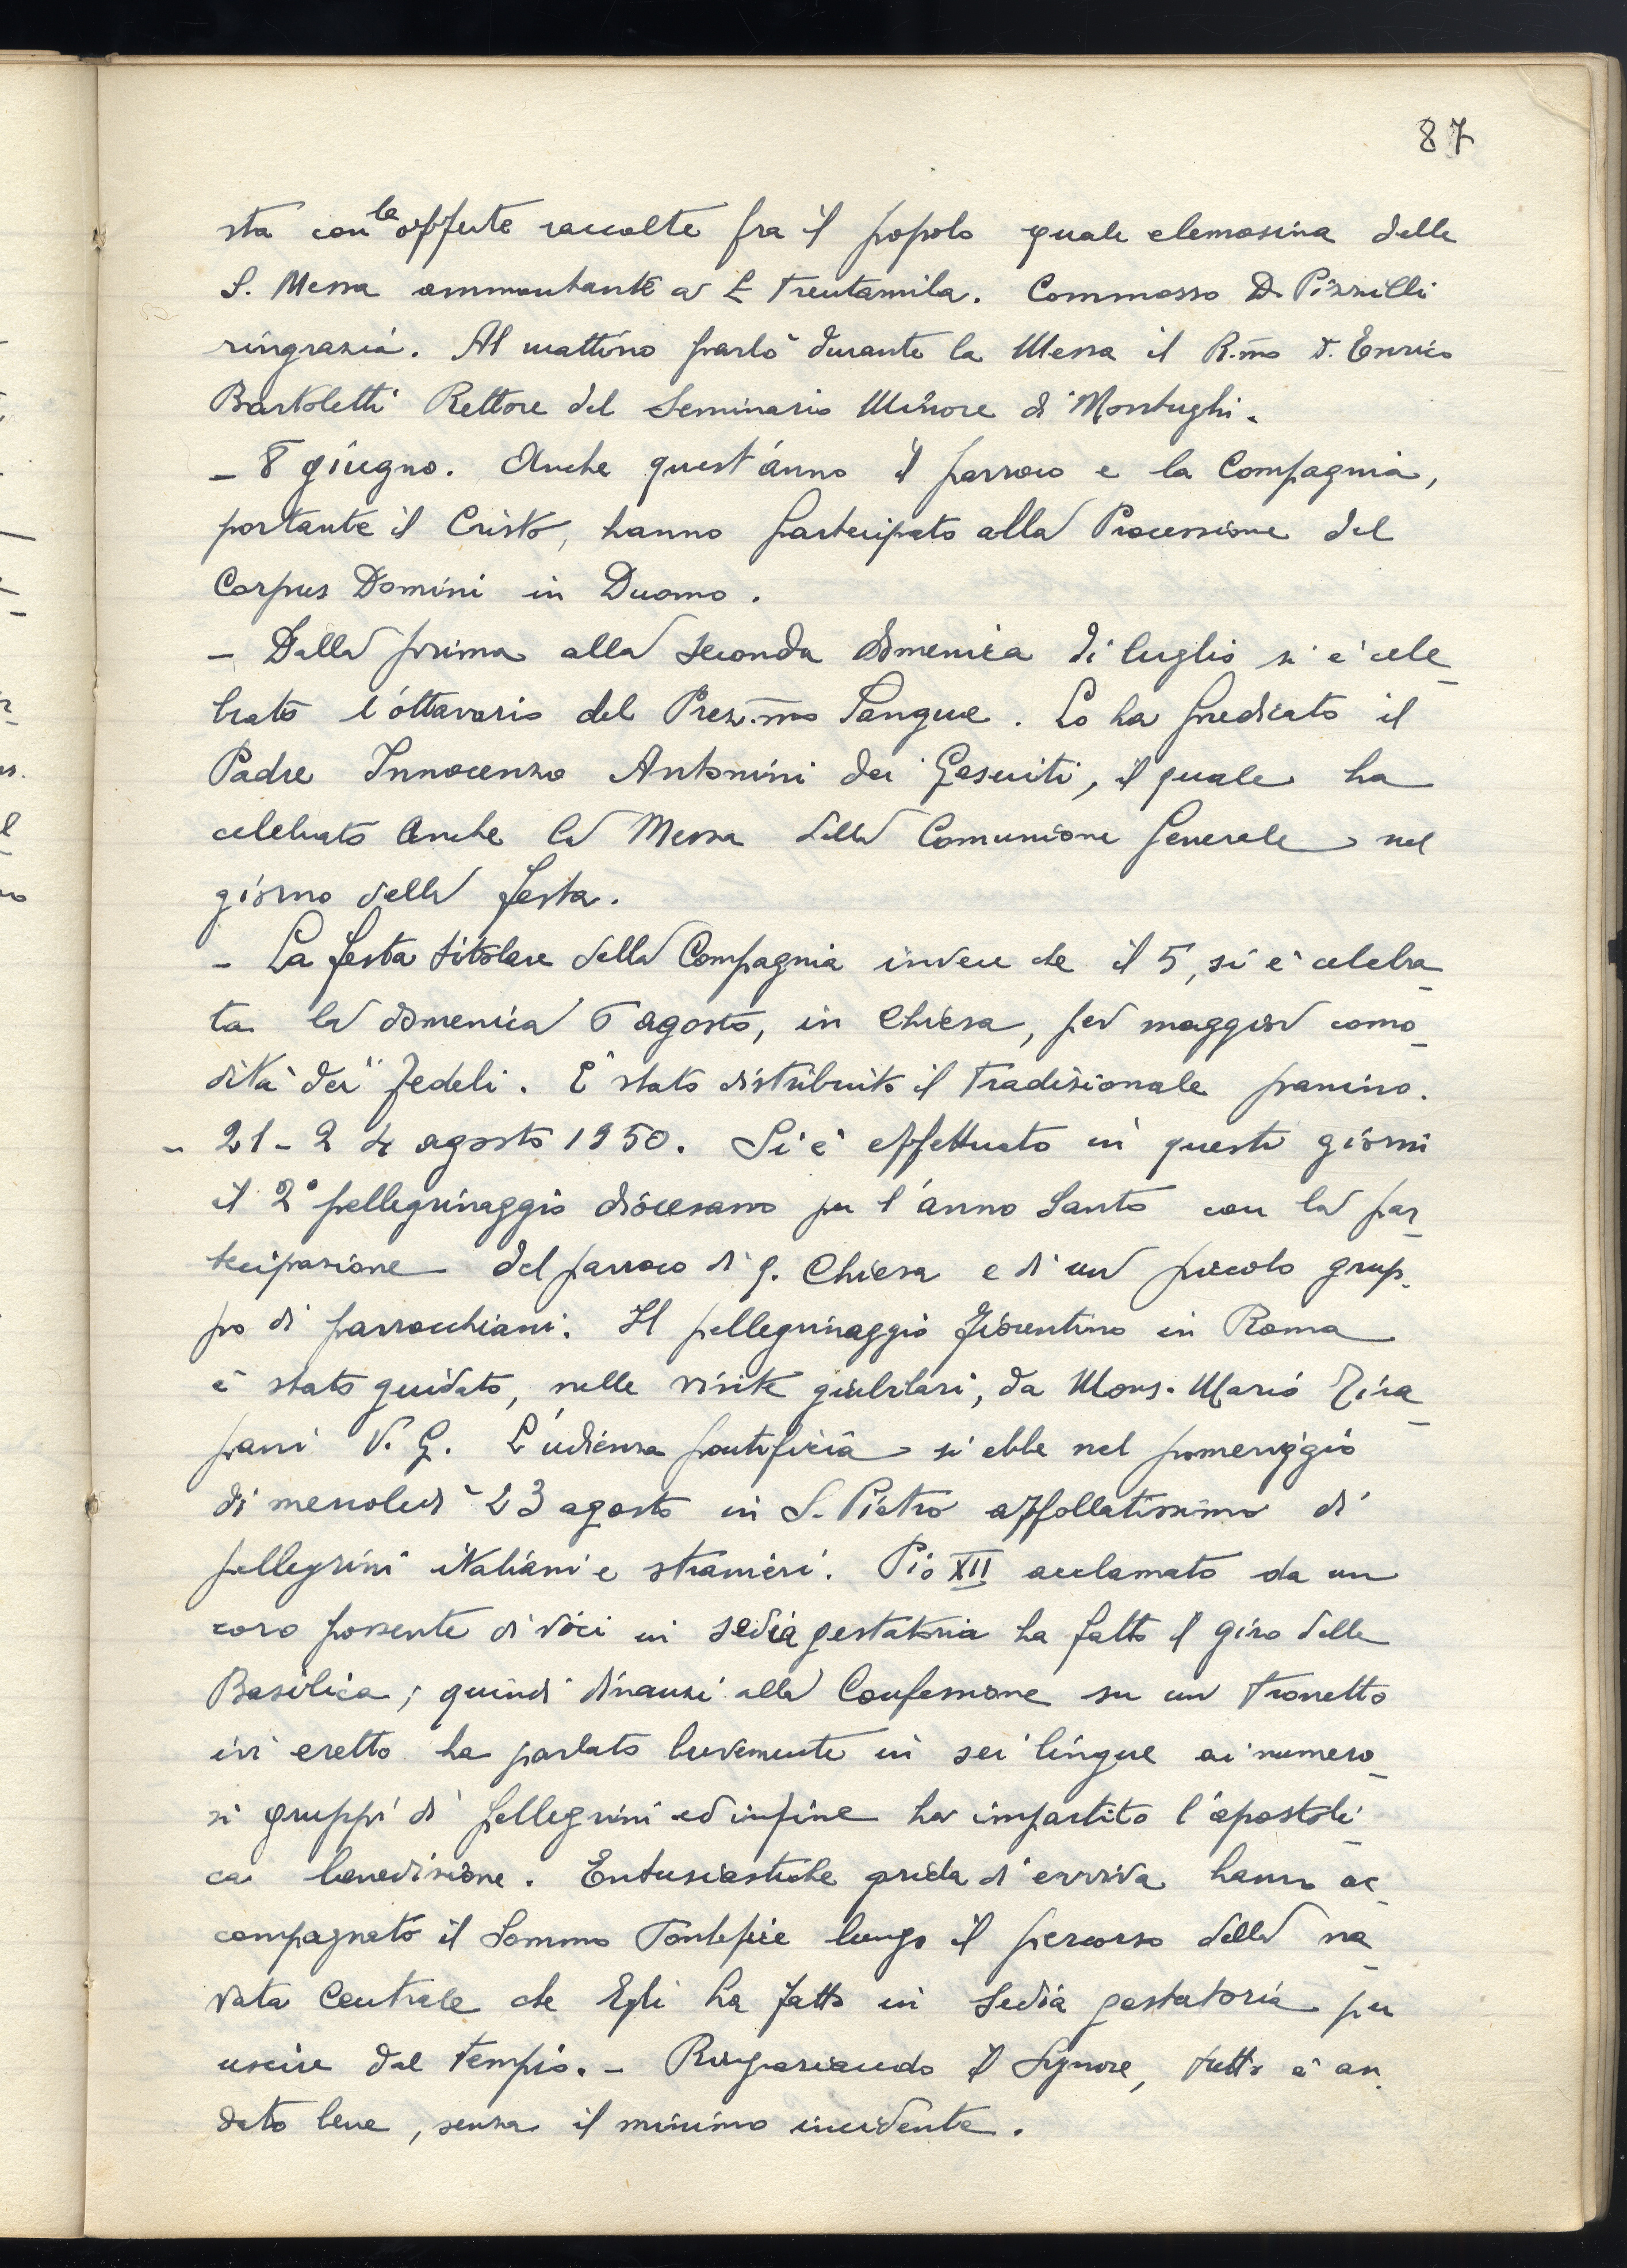 87
sta con le offerte raccolte fra il popolo quale elemosina della
S. Messa ammontante a £ Trentamila. Commosso D. Pizzilli
ringrazia. Al mattino parlò durante la Messa il R.mo D. Enrico
Bartoletti Rettore del Seminario Minore di Montughi.
- 8 giugno. Anche quest'anno il parroco e la Compagnia,
portante il Cristo, hanno partecipato alla Processione del
Corpus Domini in Duomo.
- Dalla prima alla seconda domenica di luglio si è cele-
brato l'ottavario del Prez.mo Sangue. Lo ha predicato il
Padre Innocenzo Antonini dei Gesuiti, il quale ha
celebrato anche la Messa della Comunione Generale nel
giorno della festa.
- La festa titolare della Compagnia invece che il 5, si è celebra-
ta la domenica 6 agosto, in Chiesa, per maggior como-
dità dei fedeli. È stato distribuito il tradizionale panino.
- 21-24 agosto 1950. Si è effettuato in questi giorni
il 2° pellegrinaggio diocesano per l'anno Santo con la par-
tecipazione del parroco di q. Chiesa e di un piccolo grup-
po di parrocchiani. Il pellegrinaggio fiorentino in Roma
è stato guidato, nelle visite giubilari, da Mons. Mario Tira-
pani V. G. L'udienza pontificia si ebbe nel pomeriggio
di mercoledì 23 agosto in S. Pietro affollatissimo di
pellegrini italiani e stranieri. Pio XII acclamato da un
coro possente di voci in sedia gestatoria ha fatto il giro della
Basilica; quindi dinanzi alla Confessione su un tronetto
ivi eretto ha parlato brevemente in sei lingue ai numero-
si gruppi di pellegrini ed infine ha impartito l'apostoli-
ca benedizione. Entusiastiche grida di evviva hanno ac-
compagnato il Sommo Pontefice lungo il percorso della na-
vata Centrale che Egli ha fatto in Sedia gestatoria per
uscire dal tempio. - Ringraziando il Signore, tutto è an-
dato bene, senza il minimo incidente.